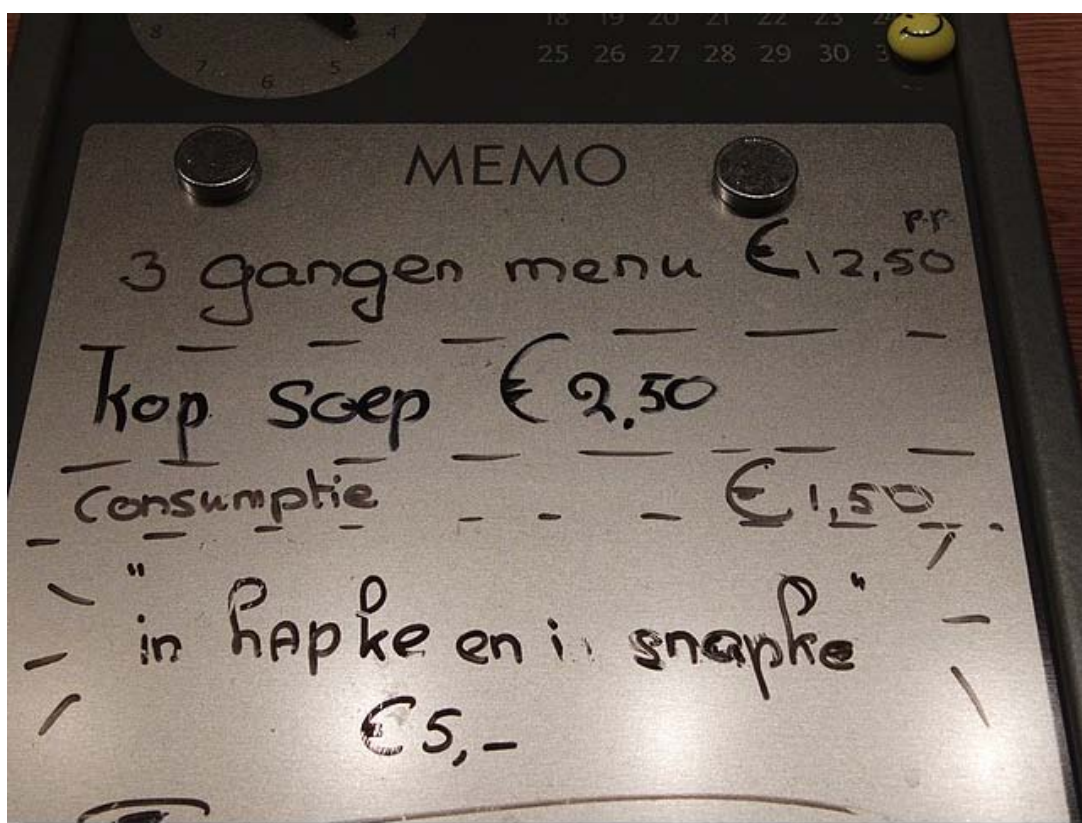 8 4
7 6 5
18 19 20 21 22 23 24
25 26 27 28 29 30 3
MEMO
p.p.
3 gangen menu €12,50
kop soep €2,50
Consumptie €1,50
"in hapke en i snapke"
€5,-